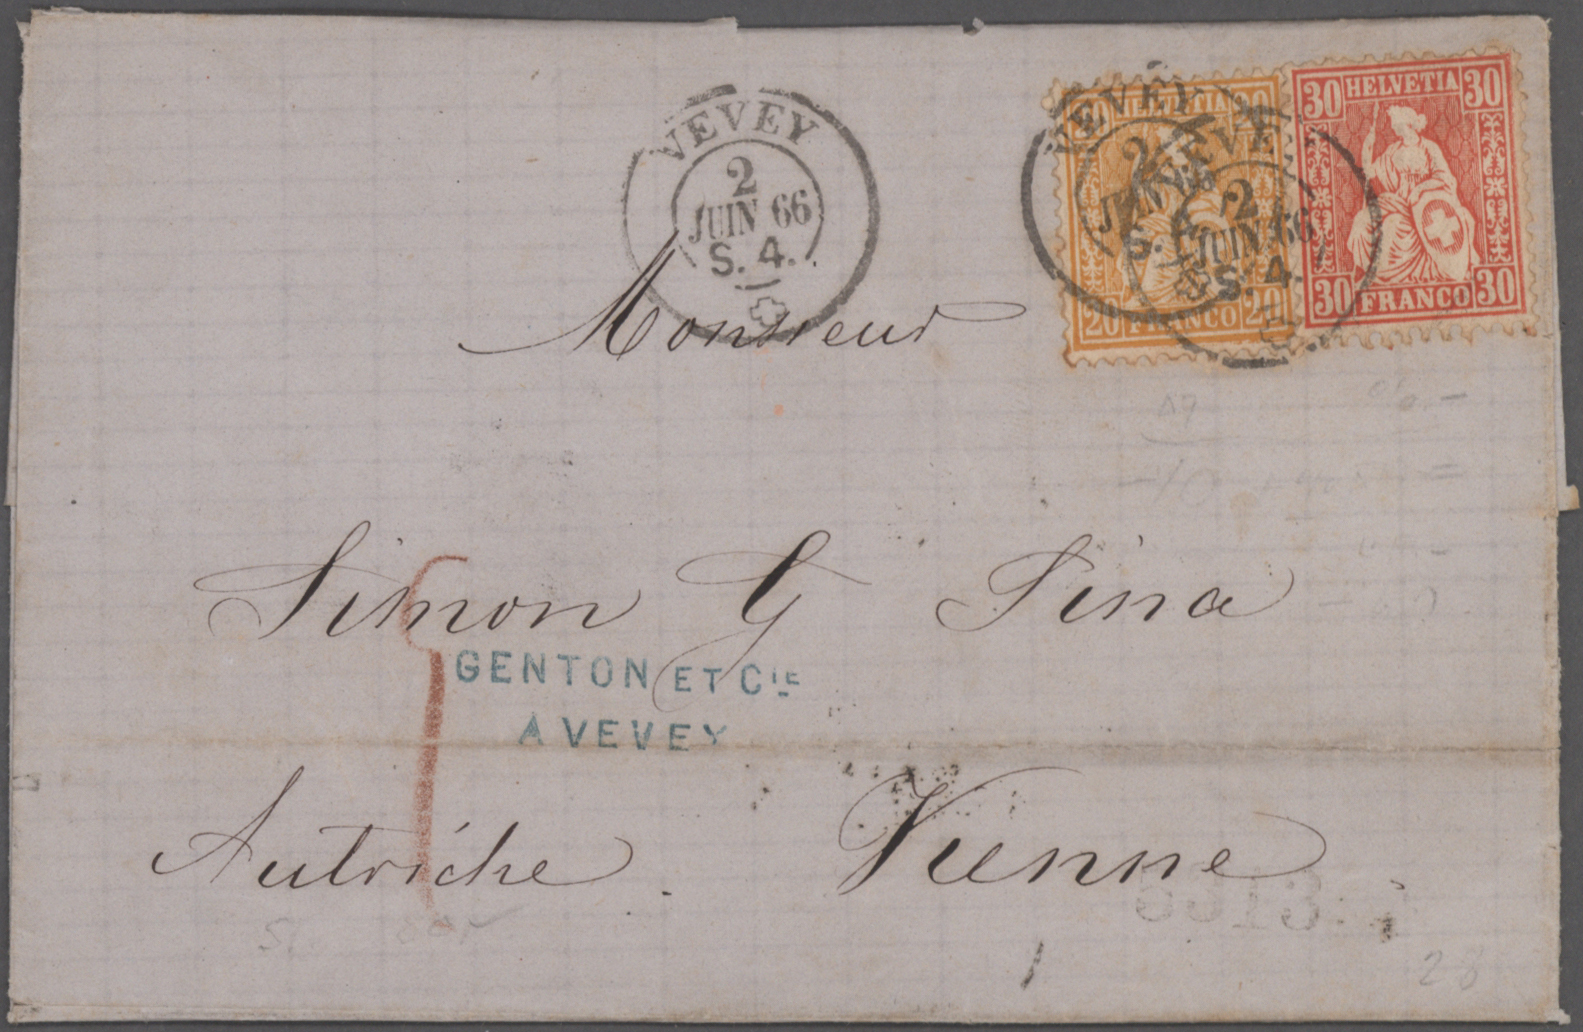 VEVEY
2
JUIN 66
S. 4.
VEVEY
2
VEVEY
2
JUIN 66
S. 4.
HELVETIA
20 FRANCO 20
30 HELVETIA 30
30 FRANCO 30
Monsieur
Simon G Sina
GENTON ET CIE
A VEVEY
Autriche. Vienne
28